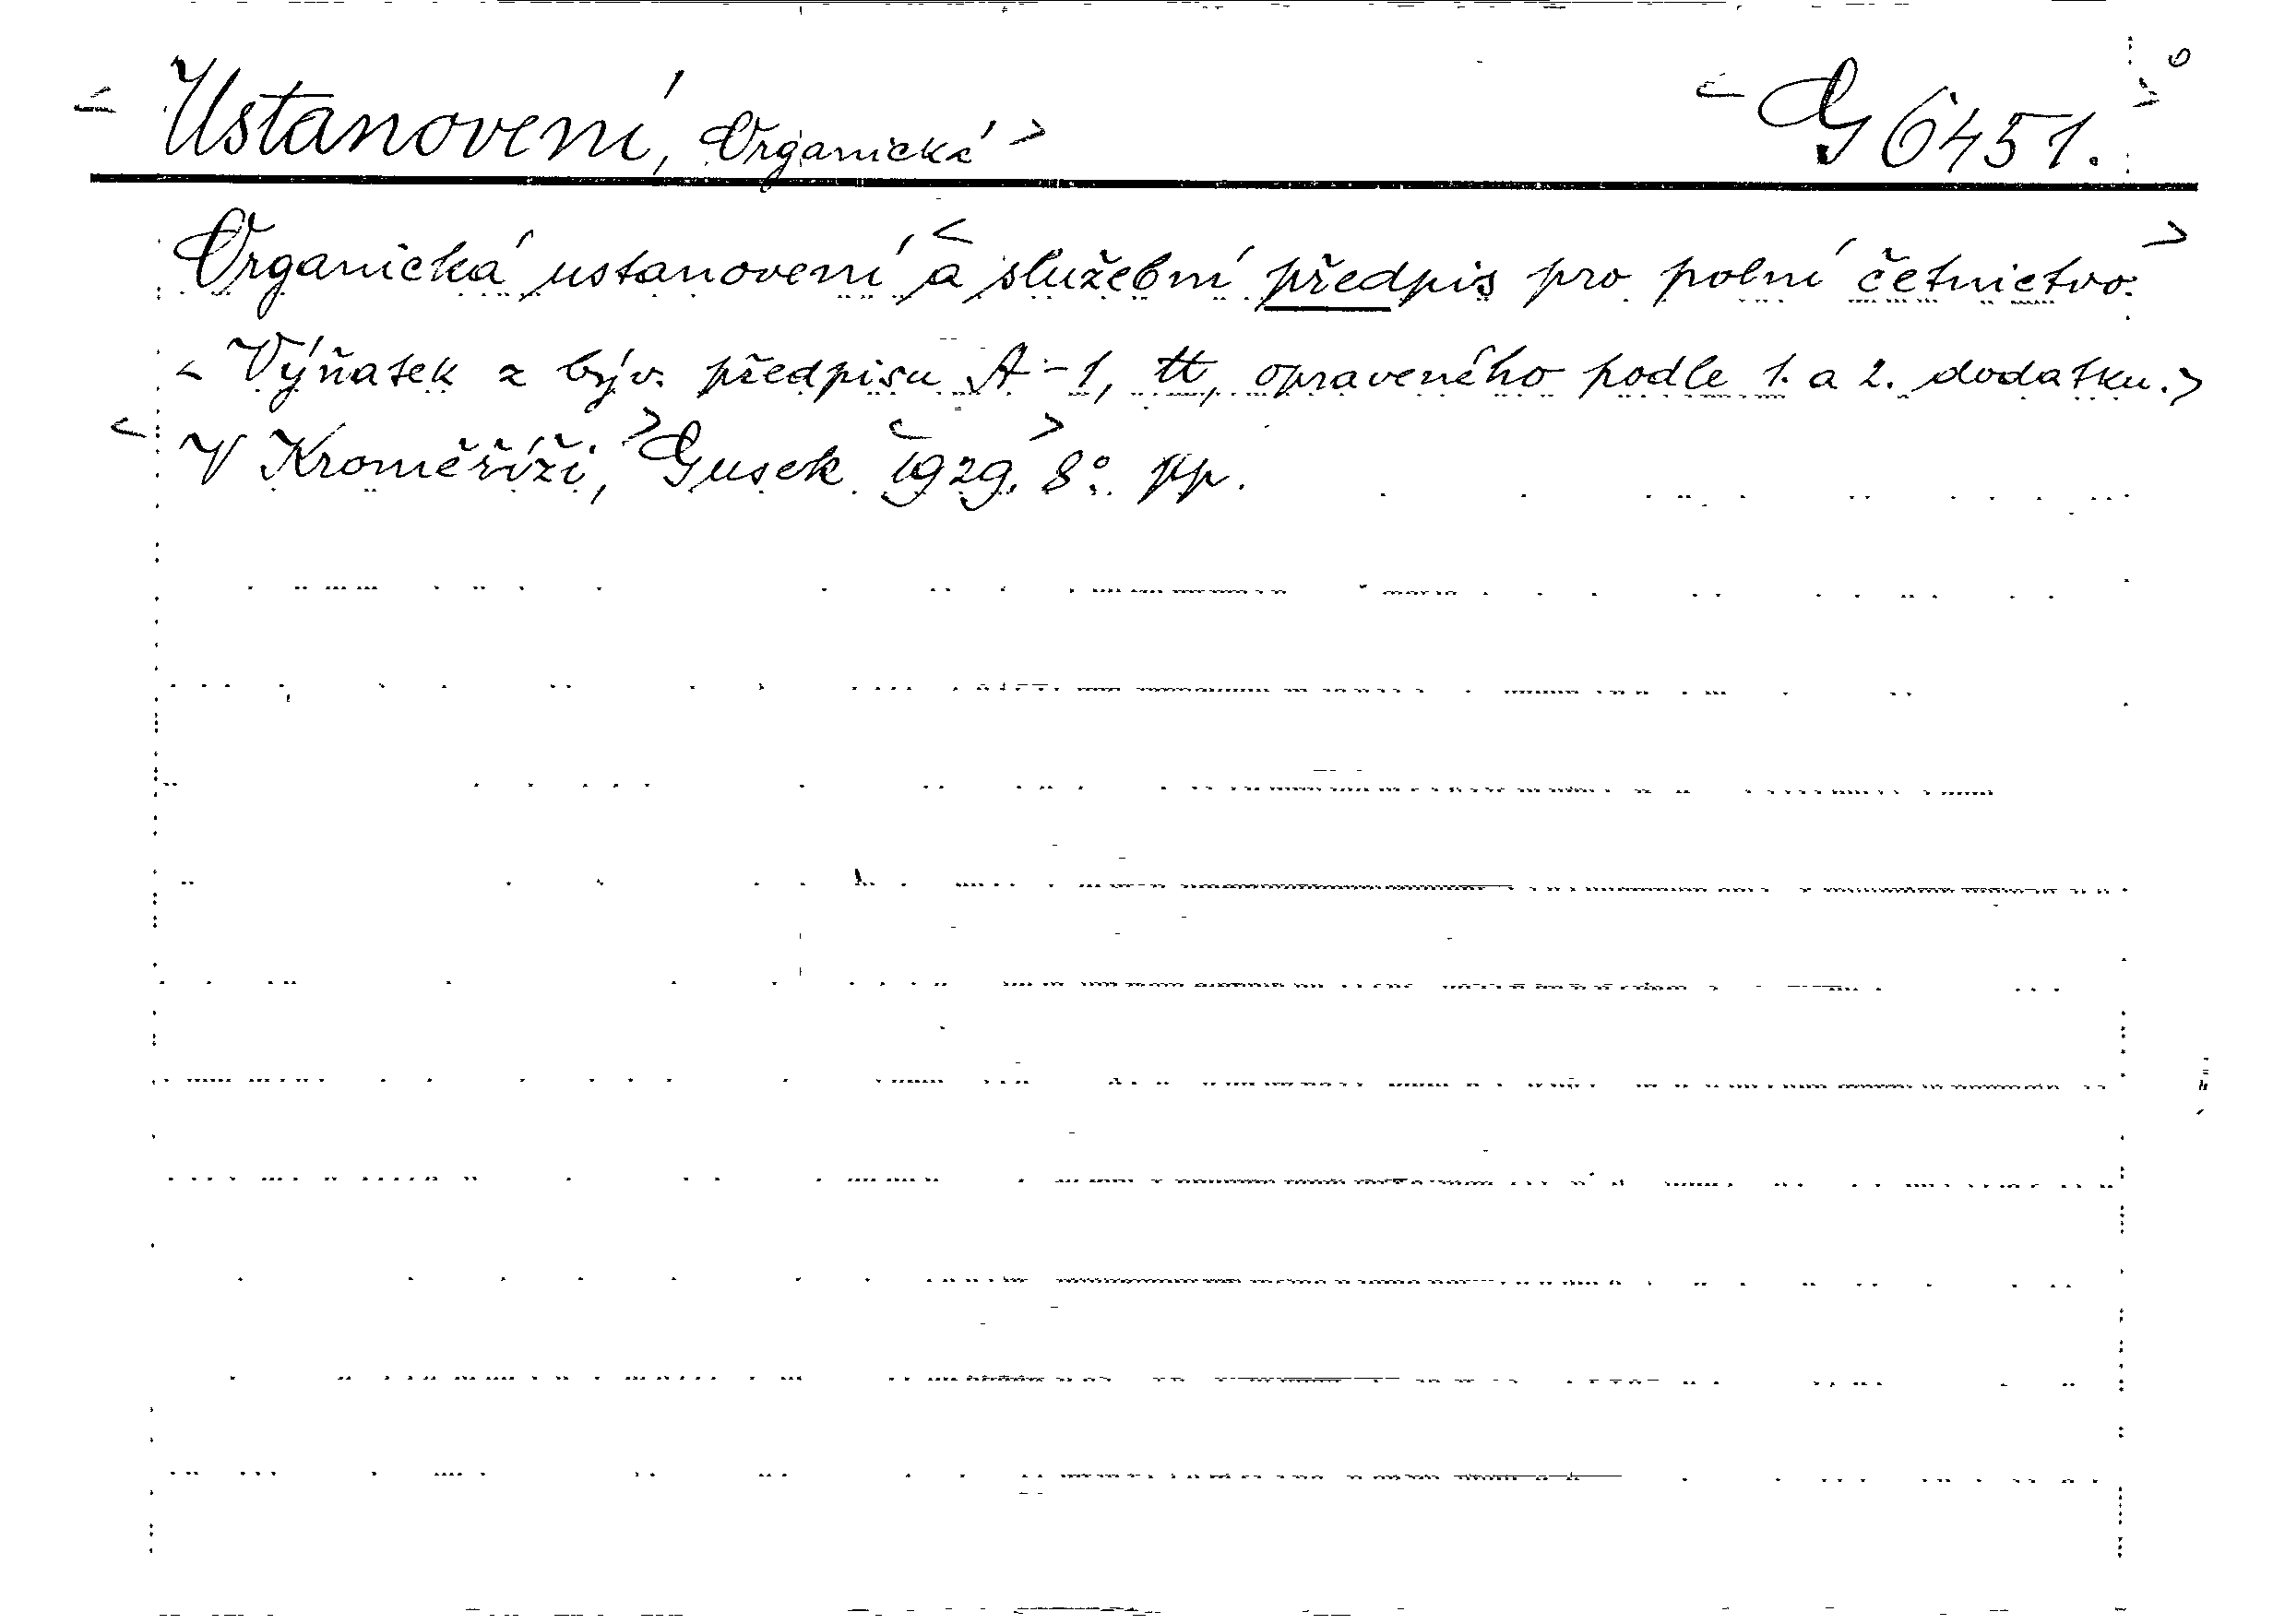 < Ustanovení, Organická >
< G 6451. >
Organická ustanovení < a služební předpis pro polní četnictvo. >
< Výňatek z býv. předpisu A-1, tt, opraveného podle 1. a 2. dodatku. >
< V Kroměříži, > Gusek < 1929. > 8° pp.